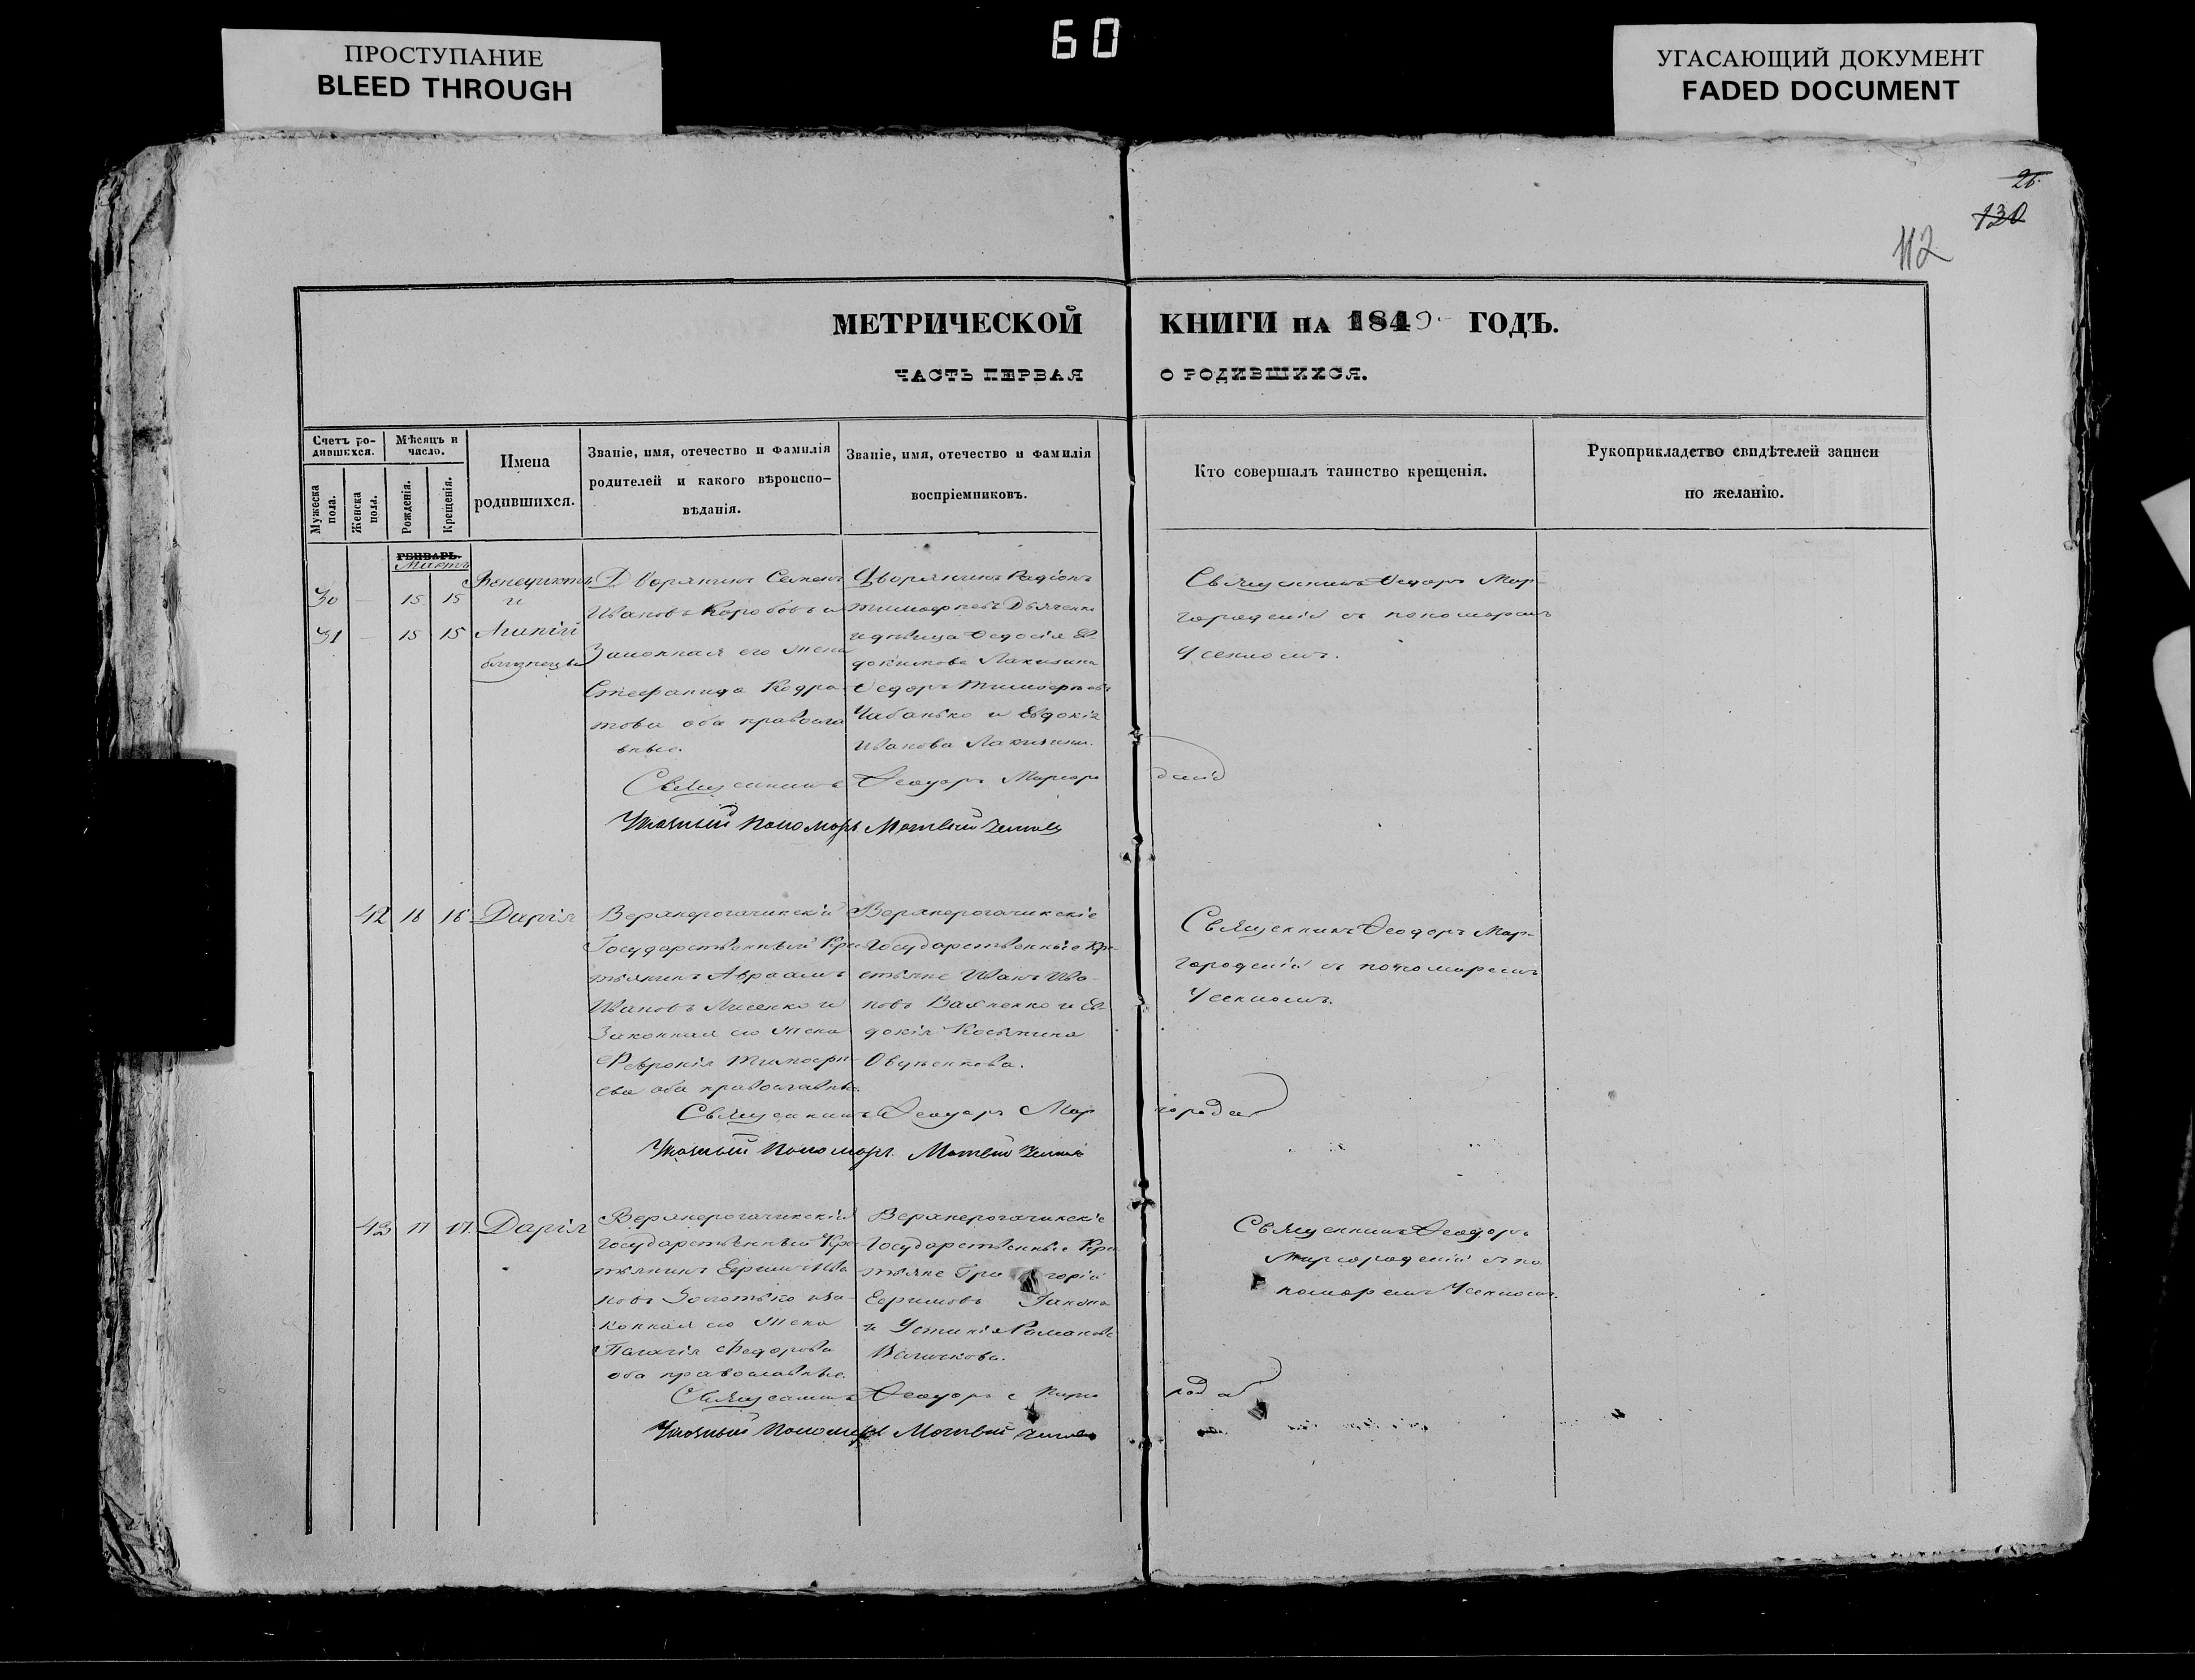 ПРОСТУПАНИЕ
BLEED THROUGH
60
УГАСАЮЩИЙ ДОКУМЕНТ
FADED DOCUMENT
26.
130
112
МЕТРИЧЕСКОЙ КНИГИ НА 1849 ГОДЪ.
ЧАСТЬ ПЕРВАЯ О РОДИВШИХСЯ.
Счетъ ро-
дившихся.
Мужеска пола.
Женска пола.
Мѣсяцъ и
число.
Рожденія.
Крещенія.
Имена
родившихся.
Званіе, имя, отечество и фамилія
родителей и какого вѣроиспо-
вѣданія.
Званіе, имя, отечество и фамилія
воспріемниковъ.
Кто совершалъ таинство крещенія.
Рукоприкладство свидѣтелей записи
по желанію.
ГЕНВАРЬ.
Мартъ
30 — 15 15
31 — 15 15
Венедиктъ
и
Агапій
близнецы
Дворянинъ Семенъ
Ивановъ Коробовъ и
Законная его жена
Стефанида Кодра
това оба правосла
вные.
Дворянинъ Радіонъ
Тимофеевъ Дьяченко
и дѣвица Федосія Ев-
докимова Лакизина
Федоръ Тимофеевъ
Чабанько и Евдокія
Иванова Лакизина.
Священникъ Феодоръ Мир-
городскій съ пономаремъ
Священникъ Феодоръ Миргоро дскій
Указный Пономарь Матвей
42 16 16 Дарія
Верхнерогачикскій
Государственный Кре
стьянинъ Авраамъ
Ивановъ Лисенко и
Законная его жена
Февронія Тимофе-
ева оба православные.
Верхнерогачикскіе
Государственные Кре-
стьяне Иванъ Ива-
новъ Вахненко и Ев-
докія Косьмина
Овдѣенкова.
Священникъ Феодоръ Мир-
городскій съ пономаремъ
Священникъ Феодоръ Мир городс
Указный Пономарь Матвей
43 17 17. Дарія
Верхнерогачикскій
Государственный Кре
стьянинъ Ефимъ Ива
новъ Золотько и за-
конная его жена
Пелагія Федорова
оба православные.
Верхнерогачикскіе
Государственные Кре
стьяне Григорій
Ефимовъ
и Устинія Романова
Священникъ Феодоръ
Миргородскій съ по
номаремъ
Священникъ Феодоръ
Указный Пономарь Матвей